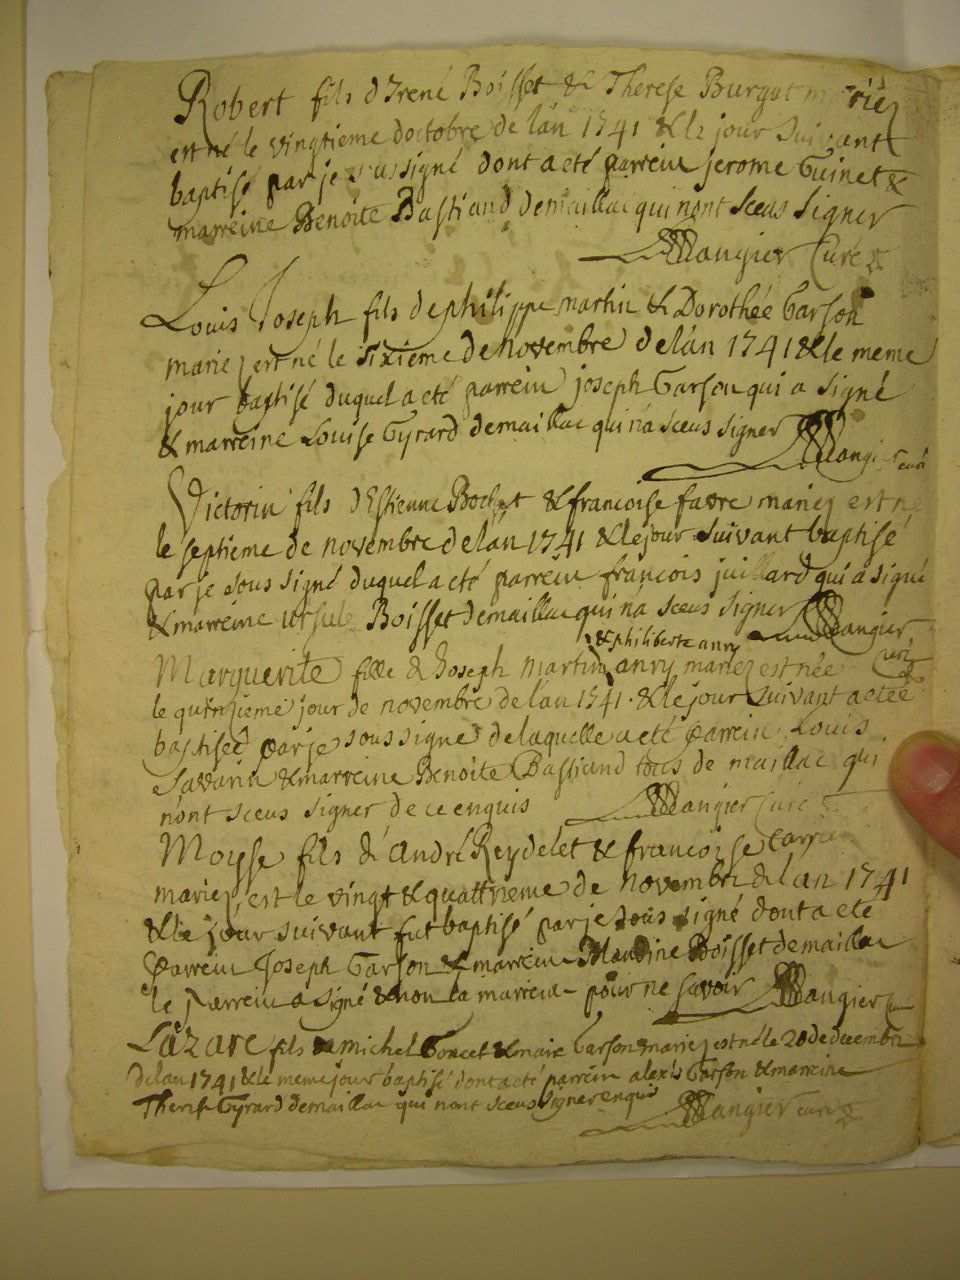 Robert fils d'Irené Boisset & Therese Burgat mariez
est né le vingtieme doctobre de lán 1741 & le jour suivant
baptisé par je sussigné dont a eté parrein jerome Guinet &
marreine Benoite Bastiand demaillac qui nont sceus signer
Mangier Curé
Louis Joseph fils dephilippe martin & Dorothée Garson
mariez est né le sixieme denovembre delán 1741 & le meme
jour baptisé duquel a eté parrein joseph Garson qui a signé
& marreine Louise Gyrard demaillac qui ná sceus signer Mangier curé
Victorin fils d'Estienne Bochet & francoise favre mariez est né
le septieme de novembre delán 1741 & le jour suivant baptisé
par je sous signé duquel a eté parrein francois juillard qui a signé
& marreine ursule Boisset demaillac qui ná sceus signer Mangier
& philiberte anry
Curé
Marguerite fille de Joseph martin anry mariez est née
le quinzieme jour de novembre delán 1741 . & le jour suivant a eteé
baptiseé par je soussigné delaquelle a eté parrein Louis
Savarin & marreine Benoite Bastiand tous de maillac qui
nónt sceus signer de ce enquis Mangier Curé
Moyse fils dé andré Reydelet & francoise Carrier
mariez est le vingt & quattrieme de novembre de lan 1741
& le jour suivant fut baptisé par je sous signé dont a eté
parrein Joseph Garson & marrein Blandine Boisset demaillac
le parrein a signé & non la marreine pour ne savoir Mangier
Lázare fils de michel Goncet & marie Garson mariez est né le 28 de decembre
delan 1741 & le meme jour baptisé dont a eté parrein alexis Garson & marreine
Therese Gyrard demaillac qui nont sceus signer enquis Mangier curé